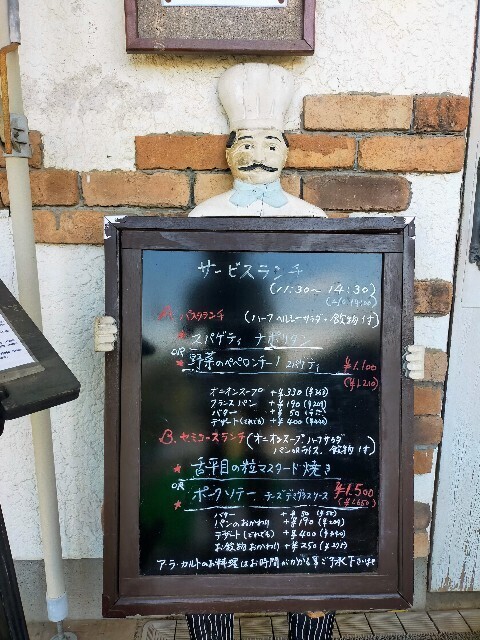 サービスランチ
(11:30〜14:30)
A. パスタランチ (ハーフヘルシーサラダ・飲物付)
* スパゲティ ナポリタン
OR
* 野菜のペペロンチーノ スパゲティ ¥1.100
(¥1.210)
オニオンスープ +¥330 (¥363)
フランスパン +¥190 (¥209)
バター +¥50 (¥55)
デザート(どれでも) +¥400 (¥440)
B. セミコースランチ (オニオンスープ ハーフサラダ
パンorライス. 飲物付)
* 舌平目の粒マスタード焼き
OR
* ポークソテー チーズデミグラスソース ¥1.500
(¥1.650)
バター +¥50 (¥55)
パンのおかわり +¥190 (¥209)
デザート(どれでも) +¥400 (¥440)
お飲物おかわり +¥250 (¥275)
アラ・カルトのお料理はお時間がかかる事ご了承下さいませ